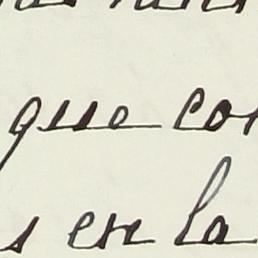 que co
s en la